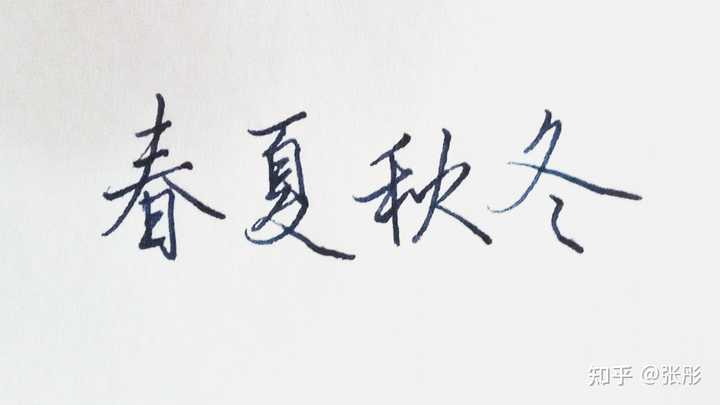 春夏秋冬
知乎 @张彤